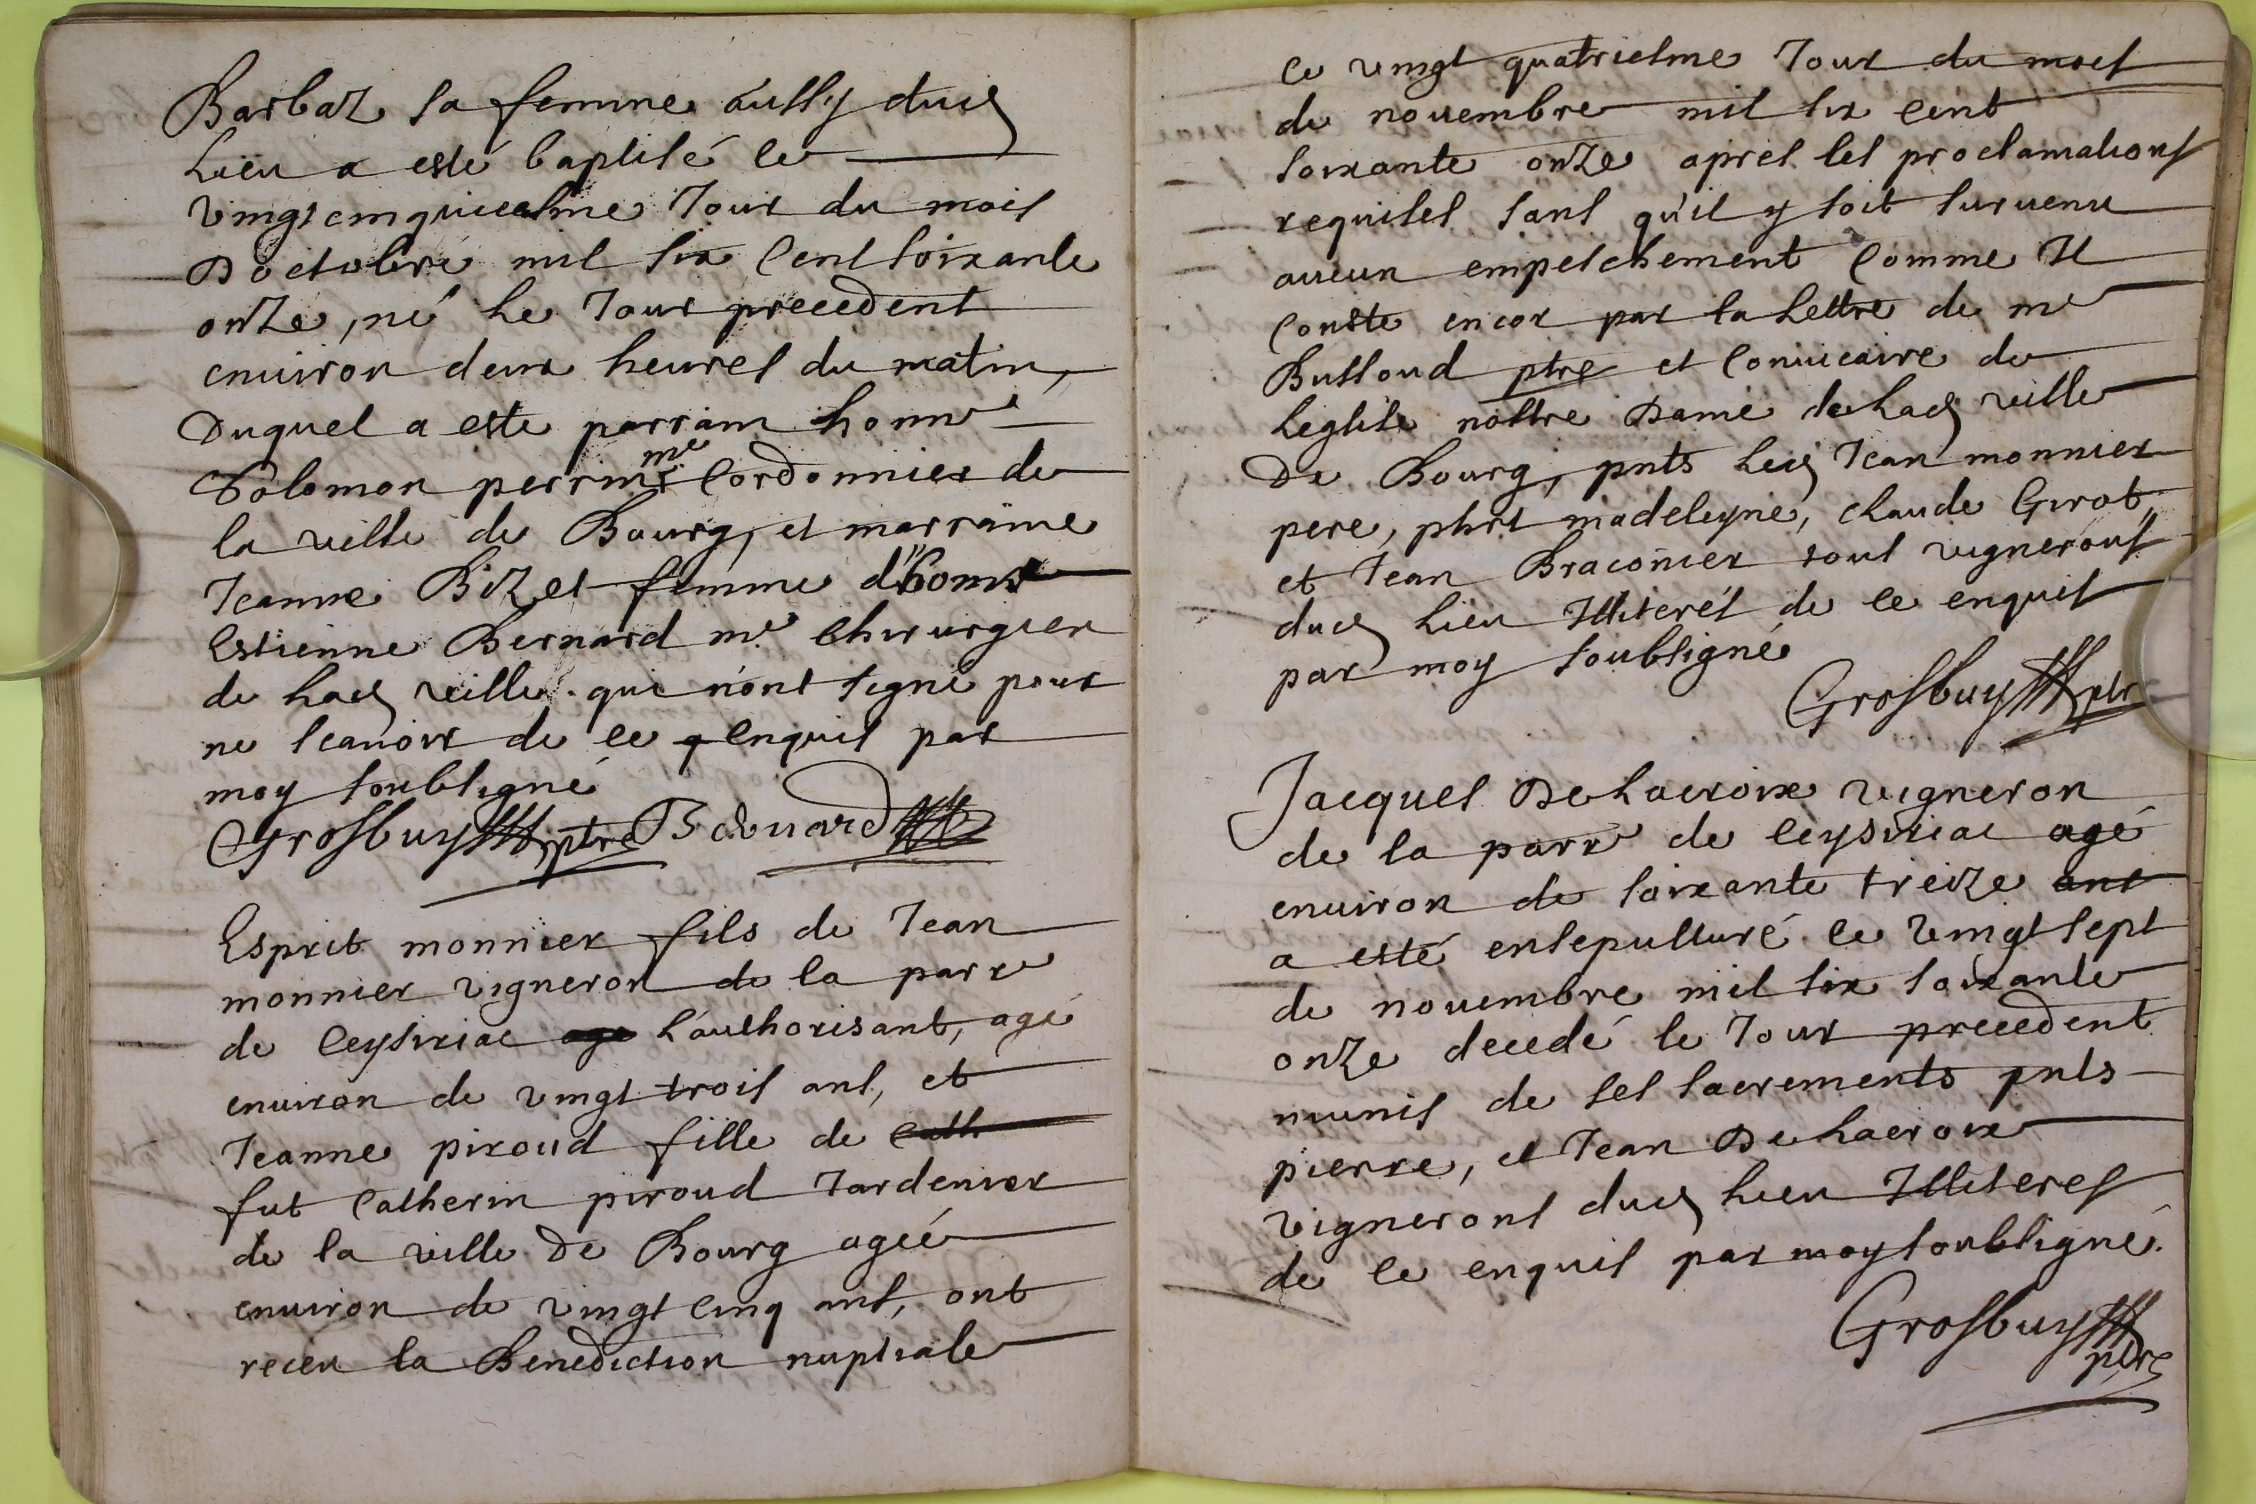 Barbaz sa femme aussy dud
Lieu a esté baptisé le
vingt cinquiesme Jour du mois
D'octobre mil six Cent soixante
onze, né Le Jour precedent
enuiron deux heures du matin,
Duquel a este parrain honn^e
Solomon perrin m^e Cordonnier de
la ville de Bourg, et marraine
Jeanne Bizet femme d'hon^e
Estienne Bernard m^e Chirurgien
de Lad ville. qui n'ont signé pour
ne scauoir de ce Enquis par
moy soubsigné
Grosbuy ptre Bdouard
Esprit monnier fils de Jean
monnier vigneron de la parr^e
de Ceysiriac age L'authorisant, agé
enuiron de vingt trois ans, et
Jeanne piroud fille de Cath
fut Catherin piroud Jardenier
de la ville De Bourg agéé
enuiron de vingt Cinq ans, ont
receu la Benediction nuptiale
Ce vingt quatriesme Jour du mois
de nouembre mil six Cent
soixante onze apres les proclamations
requises sans qu'il y soit suruenu
aucun empeschement Comme Il
Conste encor par la Lettre de m^e
Bussoud ptre et Conuicaire de
Leglise nostre Dame de Lad ville
De Bourg, pnts Led Jean monnier
pere, phrt madeleyne, Claude Girot,
et Jean Braconier tous vignerons
dud Lieu Illiterés de ce enquis
par moy soubsigné
Grosbuy ptr
Jacques DeLacroix vigneron
de la parr^e de Ceysiriac agé
enuiron de soixante treize ans
a esté ensepulturé ce vingt sept
de nouembre mil six soixante
onze decedé le Jour precedent
munis de ses sacrements pnts
pierre, et Jean DeLacroix
vignerons dud Lieu Illiteres
de ce enquis par moy soubsigné.
Grosbuy
ptre